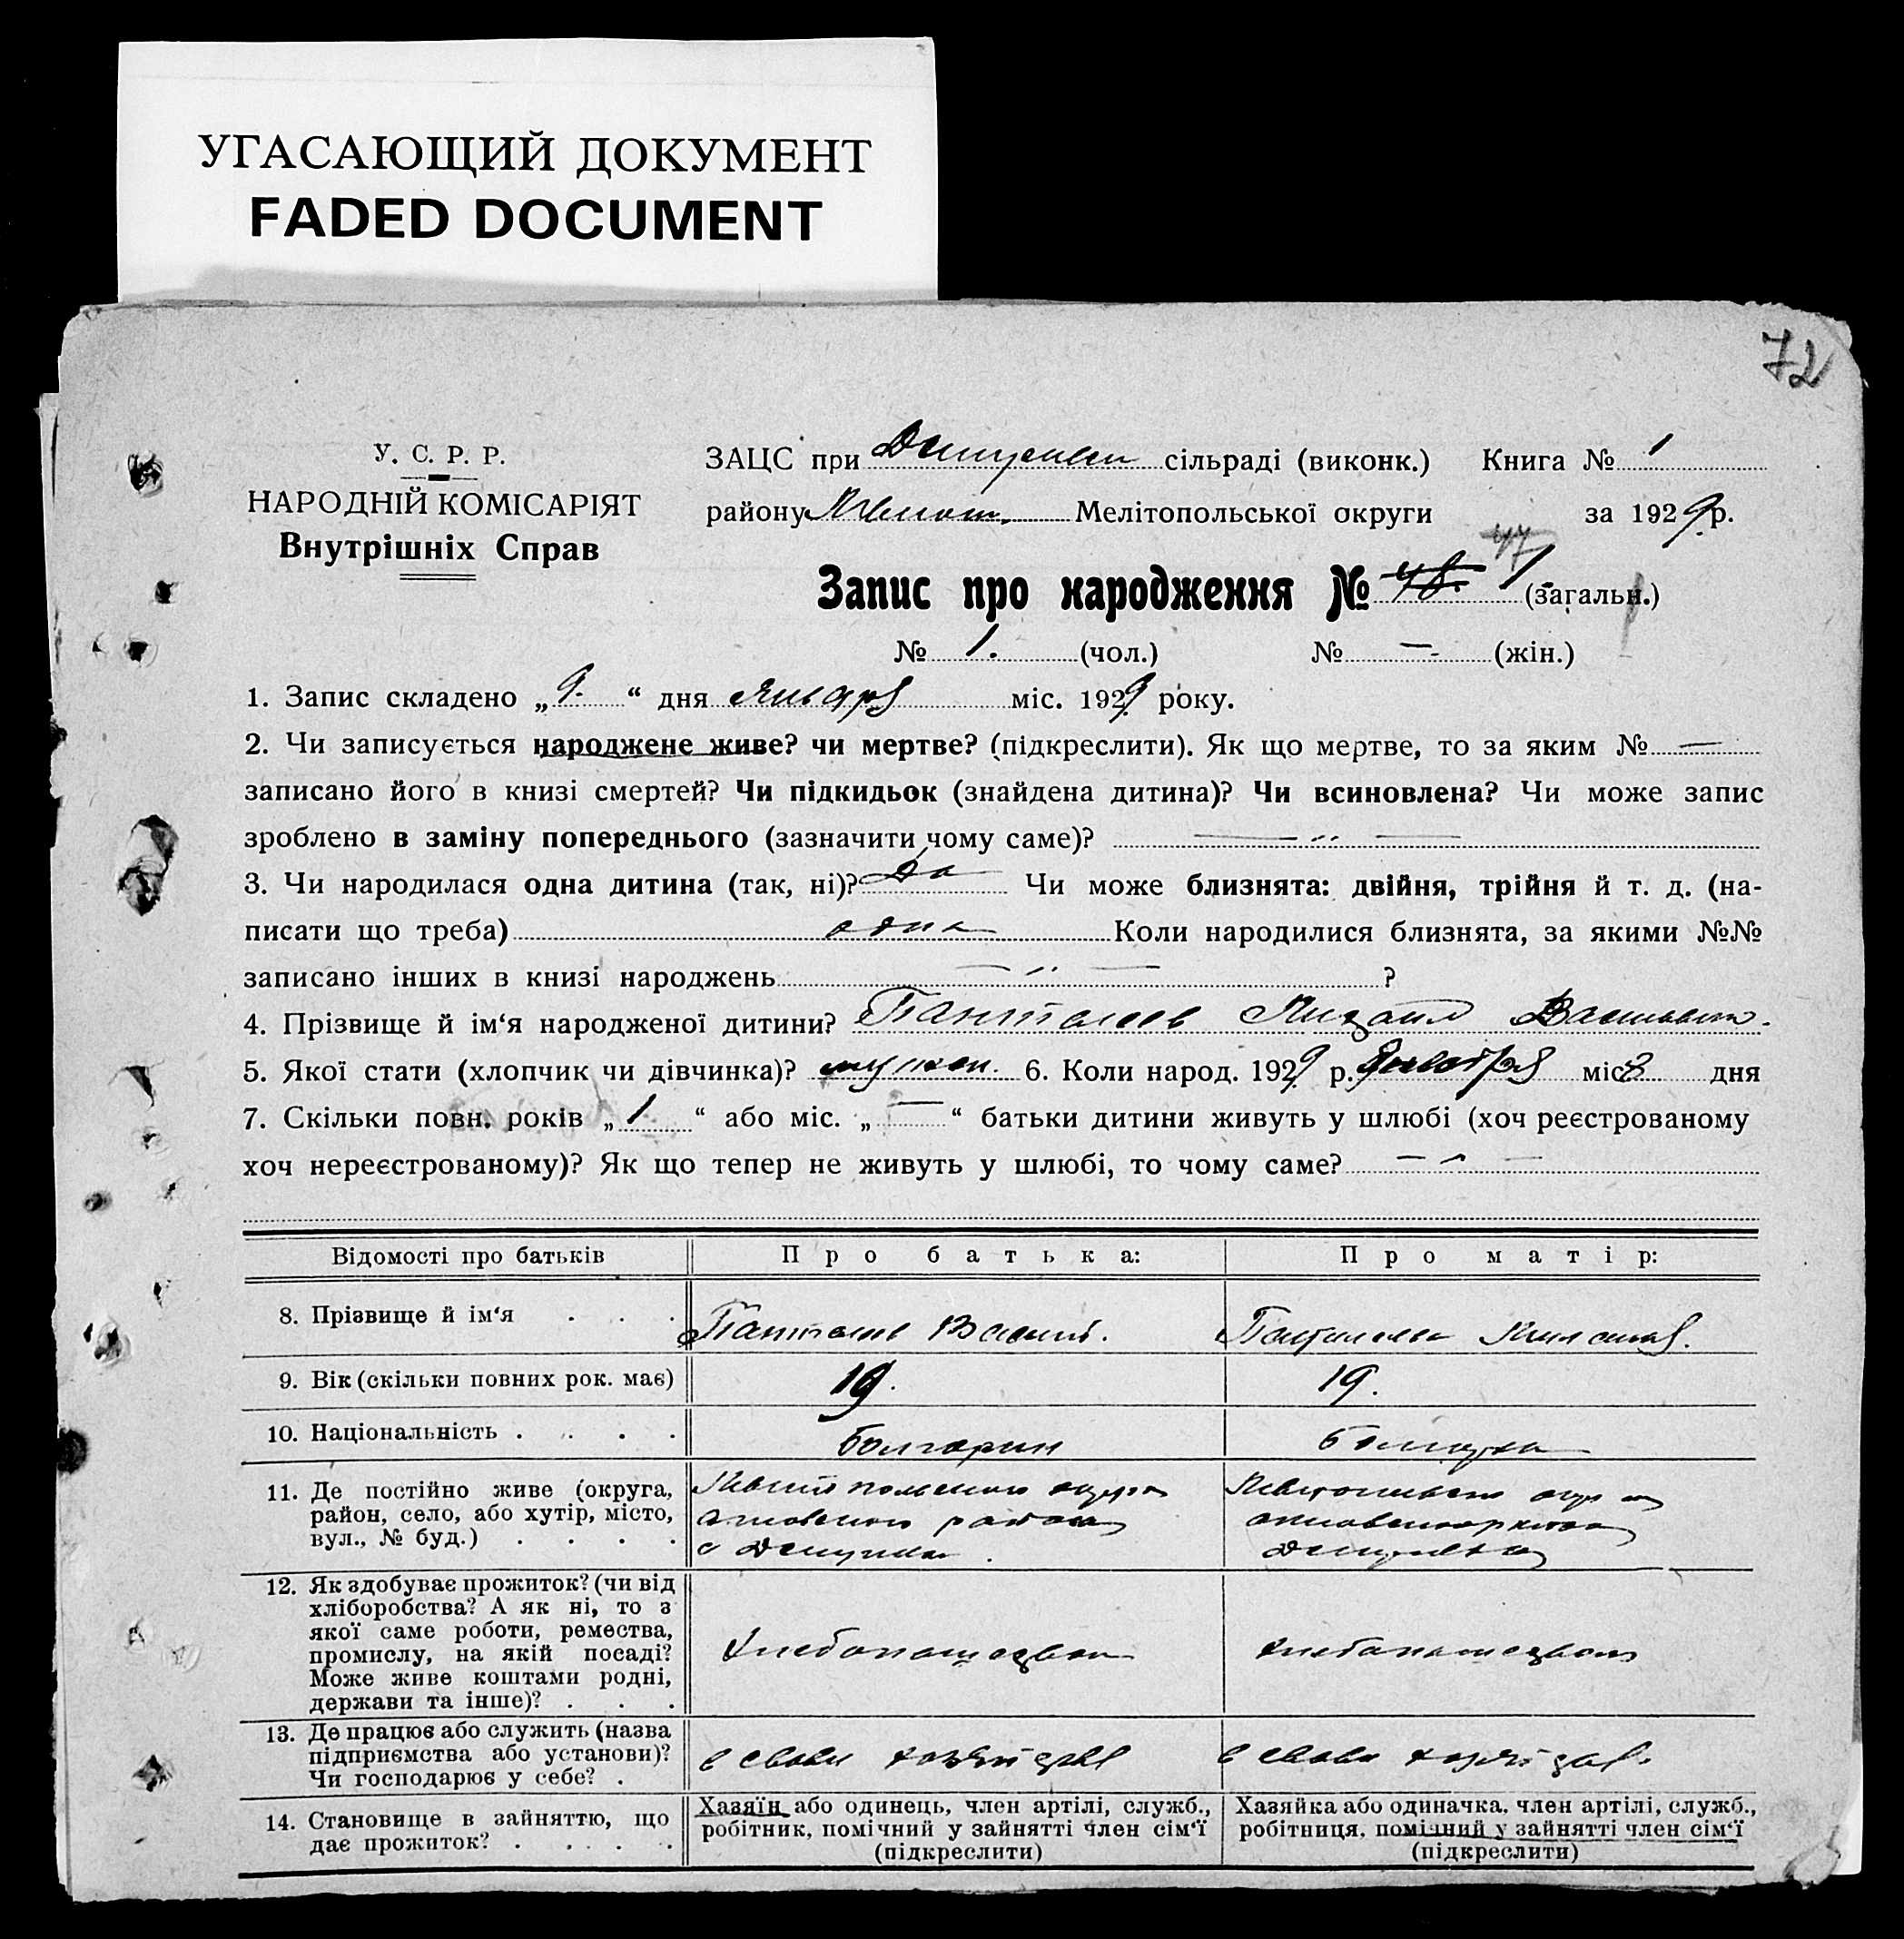 УГАСАЮЩИЙ ДОКУМЕНТ
FADED DOCUMENT
72
У. С. Р. Р.
НАРОДНІЙ КОМІСАРІЯТ
Внутрішніх Справ
ЗАЦС при сільраді (виконк.) Книга № 1
району Мелітопольської округи за 1929 р.
47
Запис про народження № 48. 1 (загальн.)
№ 1. (чол.) № — (жін.)
1. Запис складено „9.“ дня Января міс. 1929 року.
2. Чи записується народжене живе? чи мертве? (підкреслити). Як що мертве, то за яким № —
записано його в книзі смертей? Чи підкидьок (знайдена дитина)? Чи всиновлена? Чи може запис
зроблено в заміну попереднього (зазначити чому саме)? — „ —
3. Чи народилася одна дитина (так, ні)? Да Чи може близнята: двійня, трійня й т. д. (на-
писати що треба) одна Коли народилися близнята, за якими №№
записано інших в книзі народжень — „ — ?
4. Прізвище й ім‘я народженої дитини? Панталеев Михаил Васильевич.
5. Якої стати (хлопчик чи дівчинка)? мужск. 6. Коли народ. 1929 р. Января міс. 8 дня
7. Скільки повн. років „1“ або міс. „—“ батьки дитини живуть у шлюбі (хоч реєстрованому
хоч нереєстрованому)? Як що тепер не живуть у шлюбі, то чому саме? — „ —
Відомості про батьків Про батька: Про матір:
8. Прізвище й ім‘я . . . Панталеев Василий. Панталеева
9. Вік (скільки повних рок. має) 19. 19.
10. Національність . . . . болгарин болгарка
11. Де постійно живе (округа, Мелитопольского округа Мелитопольского округа
район, село, або хутір, місто, района района
вул., № буд.) . . . . с
12. Як здобуває прожиток? (чи від
хліборобства? А як ні, то з
якої саме роботи, ремества,
промислу, на якій посаді? Хлебопашеством хлебопашеством
Може живе коштами родні,
держави та інше)? . . .
13. Де працює або служить (назва
підприємства або установи)? в своем хозяйстве в своем хозяйстве.
Чи господарює у себе? .
14. Становище в зайняттю, що Хазяїн або одинець, член артілі, служб., Хазяйка або одиначка, член артілі, служб.,
дає прожиток? . . . . . робітник, помічний у зайнятті член сім‘ї робітниця, помічний у зайнятті член сім‘ї
(підкреслити) (підкреслити)